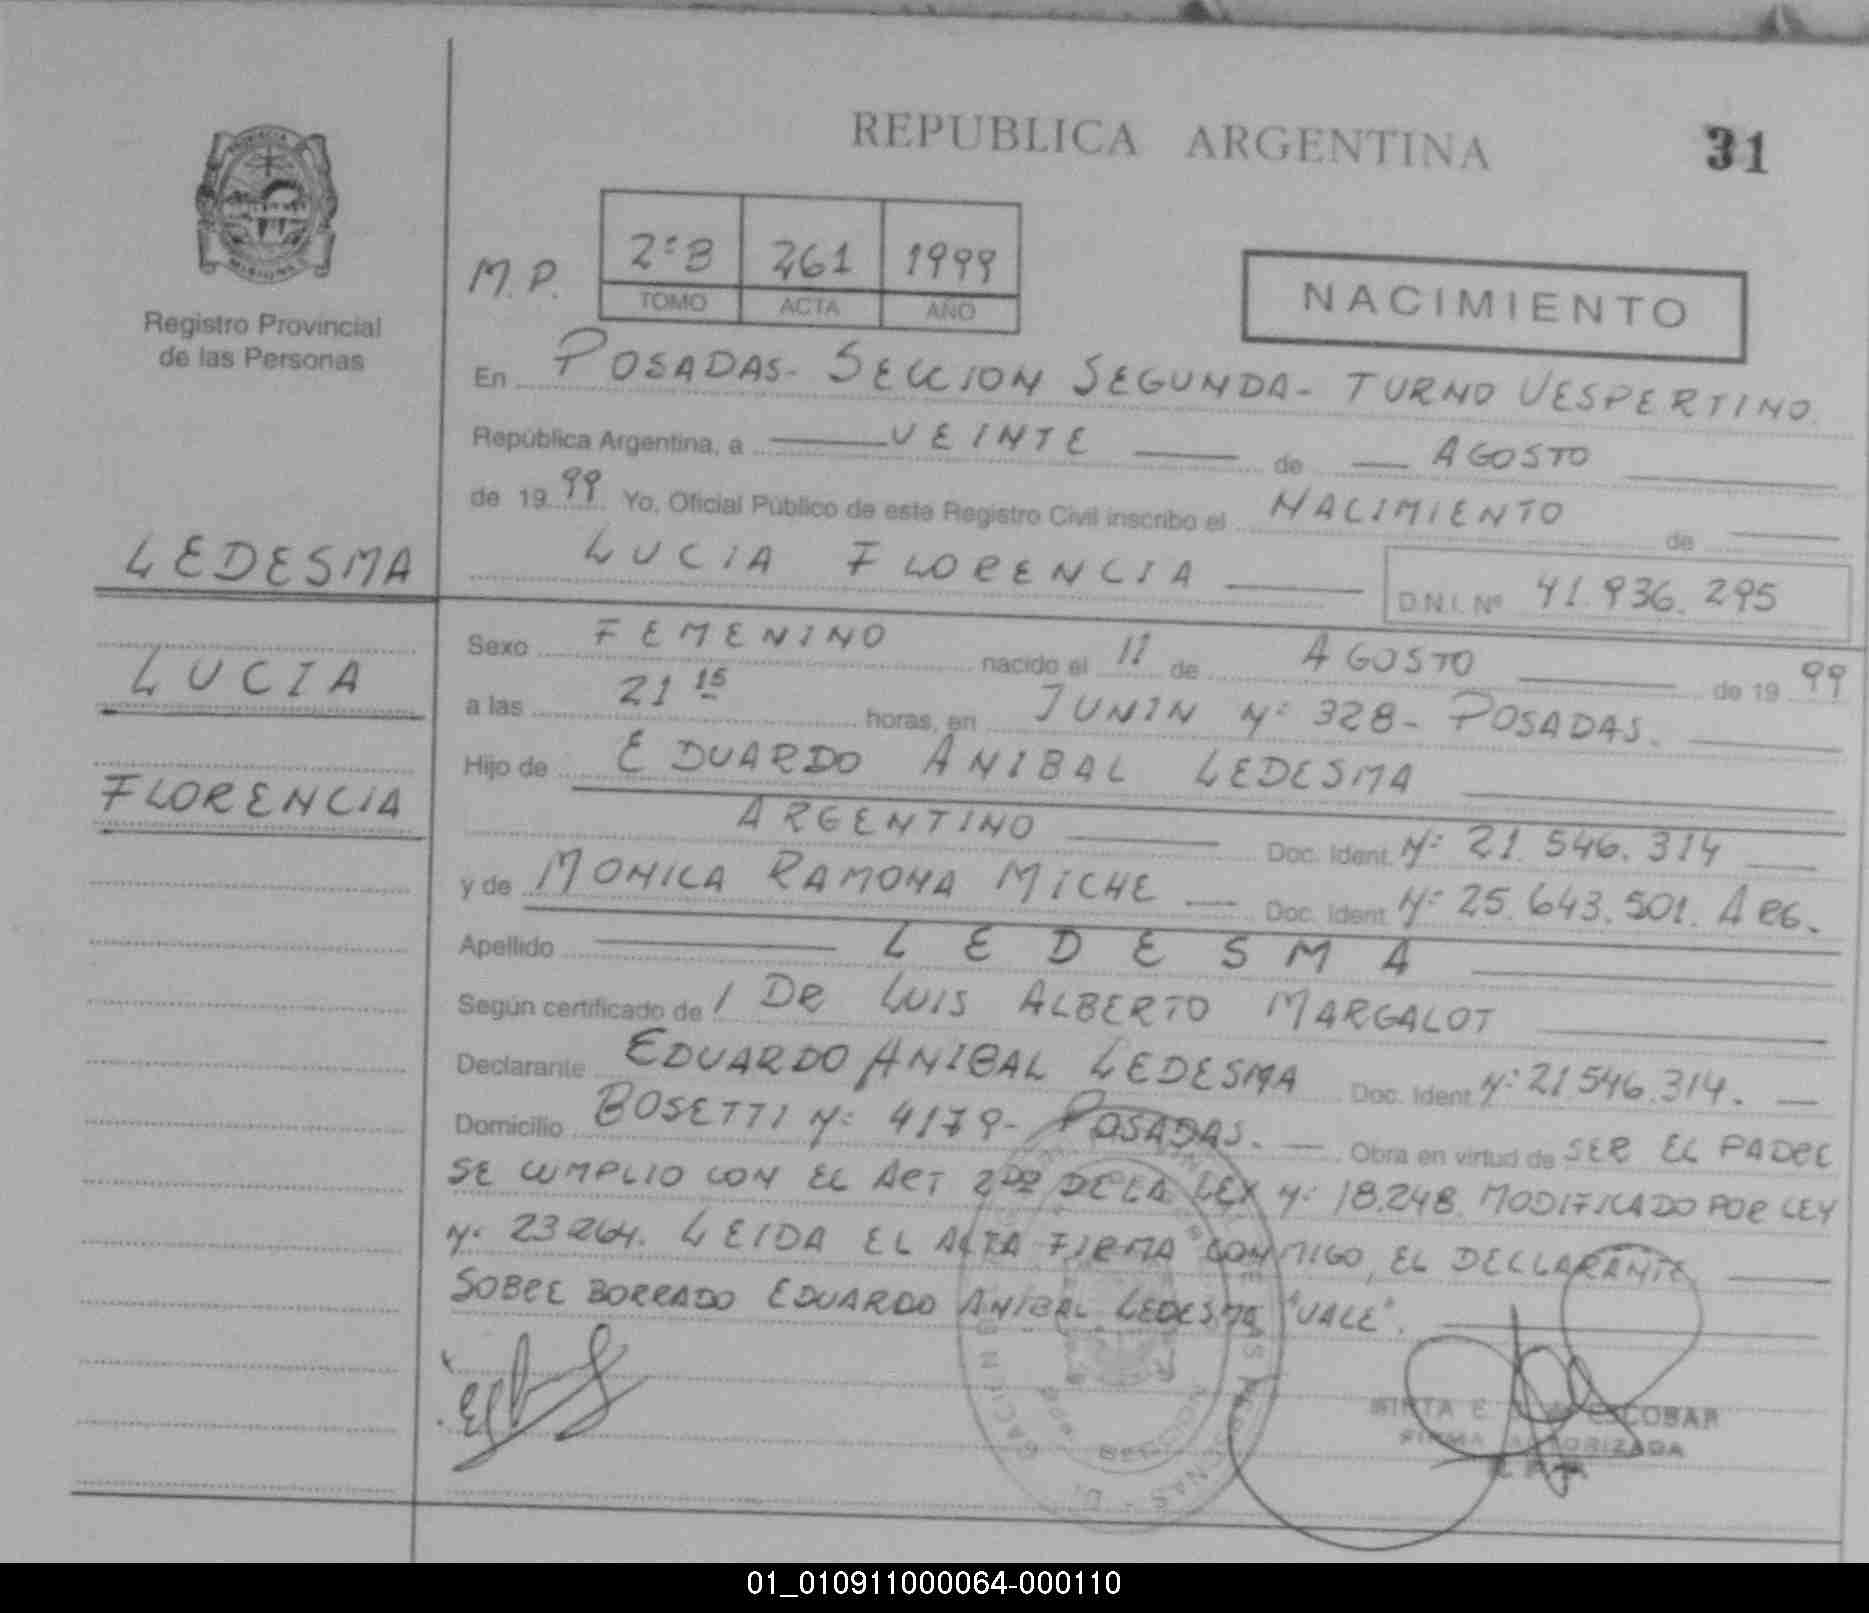 REPUBLICA ARGENTINA
31
Registro Provincial
de las Personas
M.P.
2ºB 261 1999
TOMO ACTA AÑO
NACIMIENTO
En POSADAS- SECCION SEGUNDA- TURNO VESPERTINO.
República Argentina, a VEINTE de AGOSTO
de 1999 Yo, Oficial Público de este Registro Civil inscribo el NACIMIENTO de
LEDESMA
LUCIA FLORENCIA
D.N.I. Nº 41.936.295
Sexo FEMENINO nacido el 11 de AGOSTO de 1999
LUCIA
a las 21 15 horas, en JUNIN Nº 328- POSADAS.
Hijo de EDUARDO ANIBAL LEDESMA
FLORENCIA
ARGENTINO Doc. Ident. Nº 21.546.314
y de MONICA RAMONA MICHE Doc. Ident. Nº 25.643.501. ARG.
Apellido LEDESMA
Según certificado de / DR LUIS ALBERTO MARGALOT
Declarante EDUARDO ANIBAL LEDESMA Doc. Ident. Nº 21546.314.
Domicilio BOSETTI Nº 4179- POSADAS. Obra en virtud de SER EL PADRE
SE CUMPLIO CON EL ART 2DO DE LA LEY Nº 18.248. MODIFICADO POR LEY
Nº 23264. LEIDA EL ACTA FIRMA CONMIGO, EL DECLARANTE
SOBRE BORRADO EDUARDO ANIBAL LEDESMA "VALE".
ESCOBAR
FIRMA AUTORIZADA
01_010911000064-000110